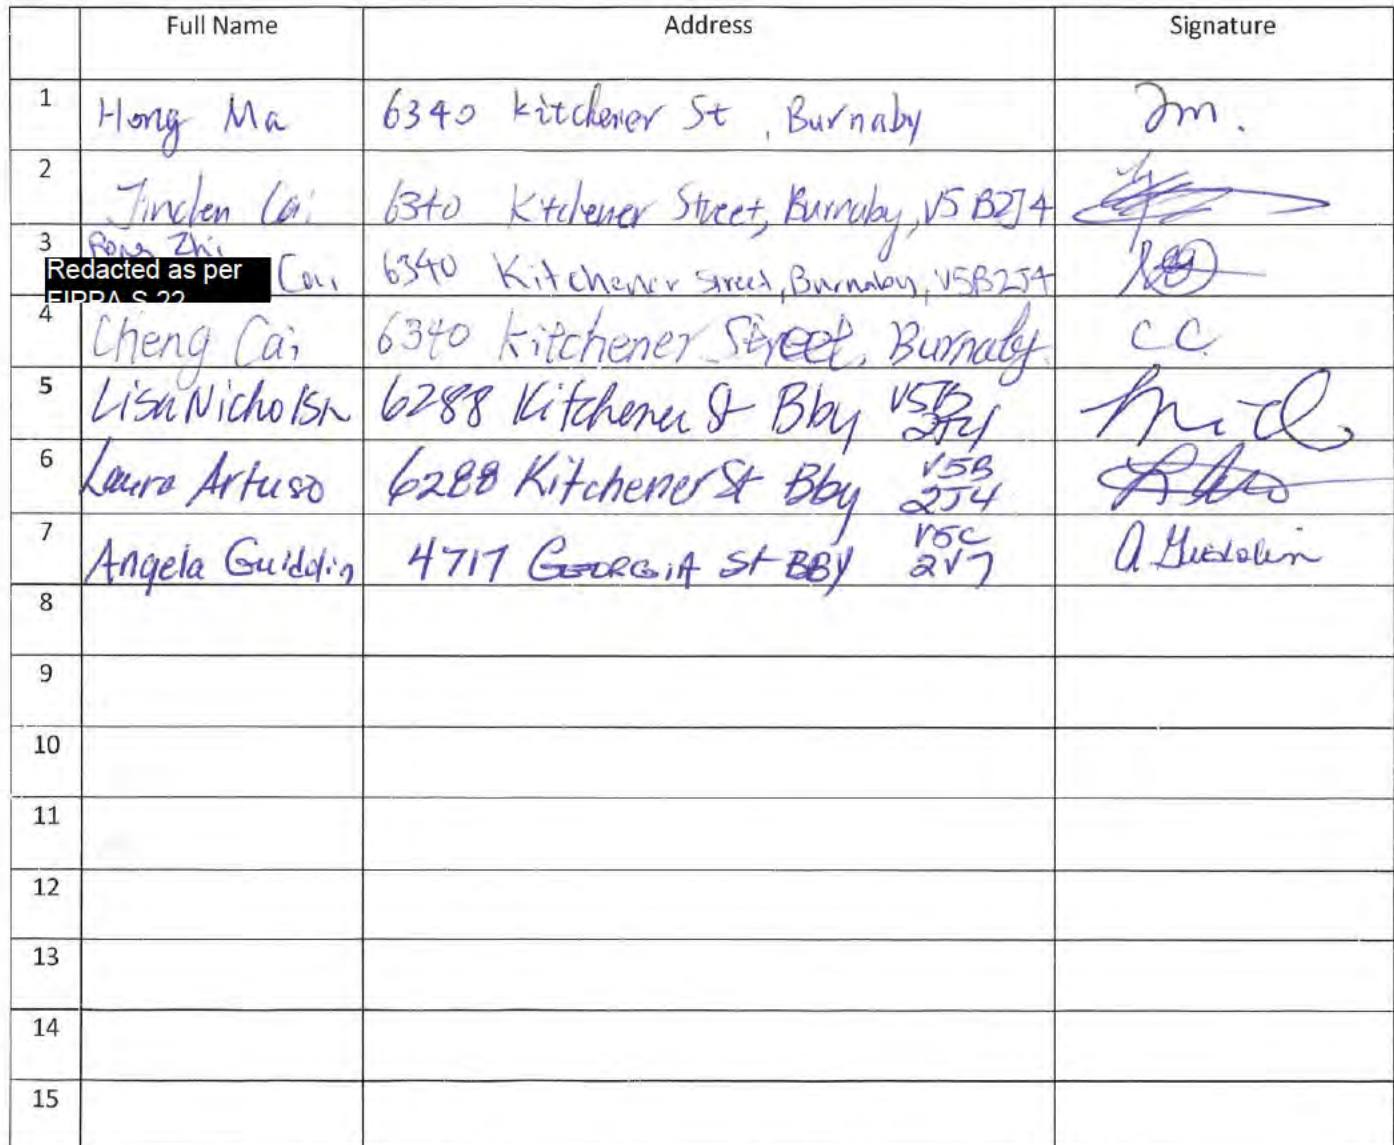 Full Name Address Signature
1 Hong Ma 6340 Kitchener St, Burnaby Jm.
2 Jinden Cai 6340 Kitchener Street, Burnaby, V5B2J4
3 Zhi
Redacted as per Cai 6340 Kitchener Street, Burnaby, V5B2J4
FIPPA S.22
4 Cheng Cai 6340 Kitchener Street, Burnaby. C.C.
5 Lisa Nicholsn 6288 Kitchener St Bby V5B
2J4
6 Laura Artuso 6288 Kitchener St Bby V5B
2J4
7 Angela Guidolin 4717 GEORGIA St BBY V5C
2V7 A Guidolin
8
9
10
11
12
13
14
15